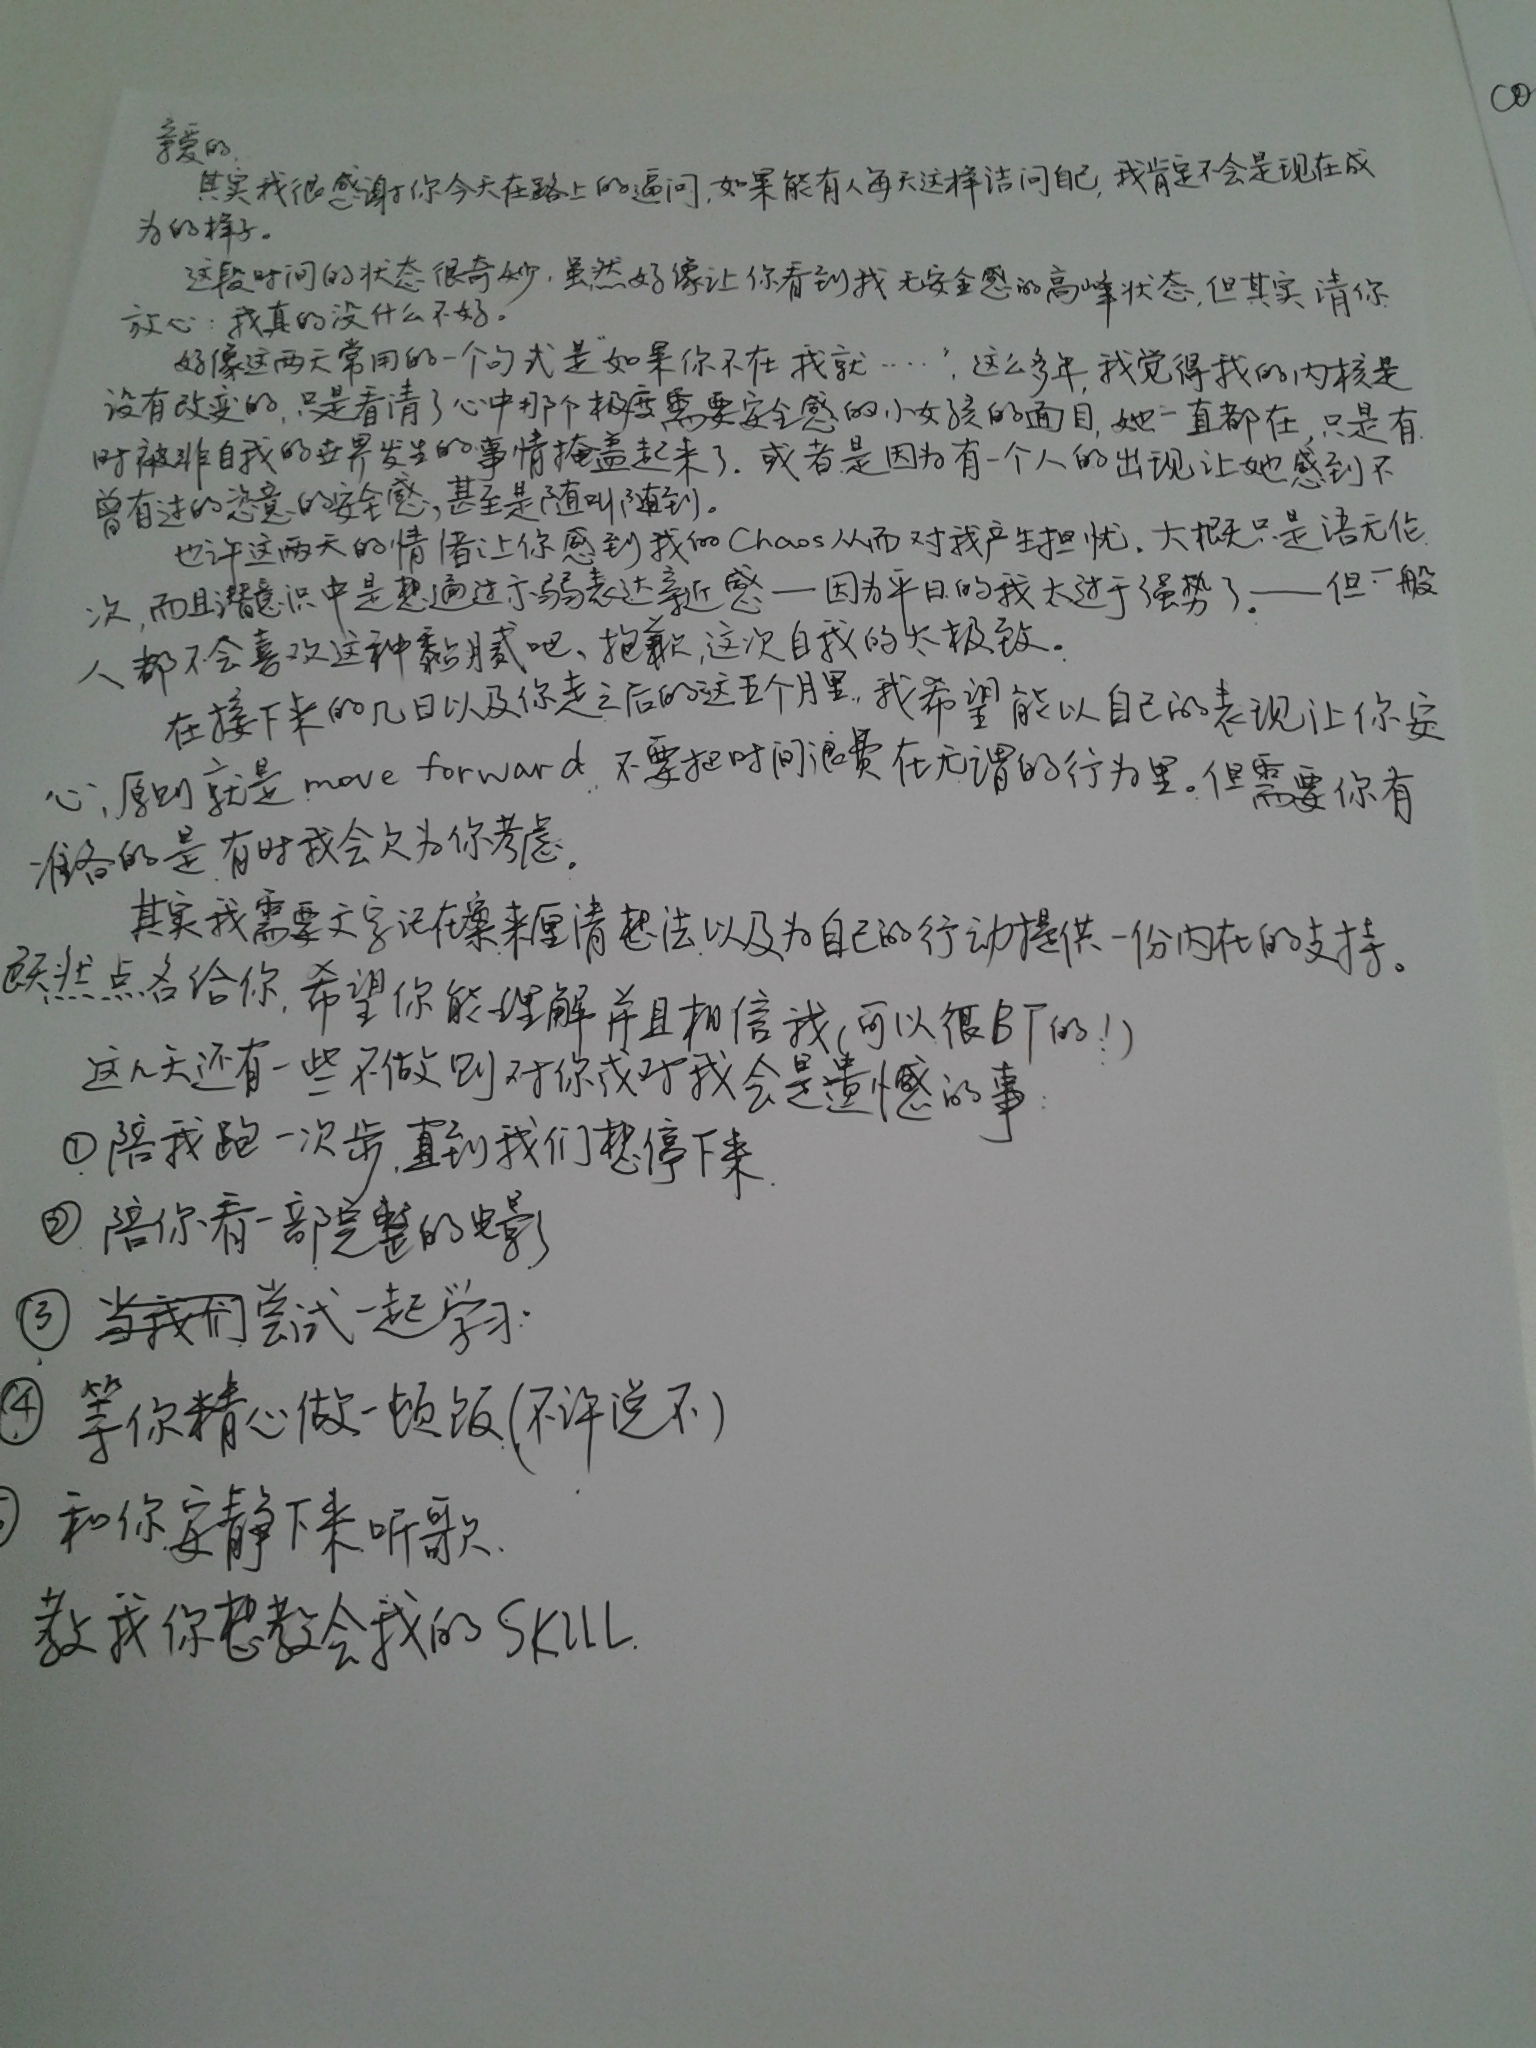 亲爱的,
其实我很感谢你今天在路上的逼问,如果能有人每天这样诘问自己,我肯定不会是现在成
为的样子。
这段时间的状态很奇妙.虽然好像让你看到我无安全感的高峰状态,但其实请你
放心:我真的没什么不好。
好像这两天常用的一个句式是“如果你不在我就……”,这么多年,我觉得我的内核是
没有改变的,只是看清了心中那个极度需要安全感的小女孩的面目,她一直都在,只是有
时被非自我的世界发生的事情掩盖起来了.或者是因为有一个人的出现让她感到不
曾有过的恣意的安全感,甚至是随叫随到。
也许这两天的情绪让你感到我的Chaos从而对我产生担忧.大概只是语无伦
次,而且潜意识中是想通过示弱表达亲近感—因为平日的我太过于强势了.——但一般
人都不会喜欢这种黏腻吧、抱歉,这次自我的太极致。
在接下来的几日以及你走之后的这五个月里,我希望能以自己的表现让你安
心,原则就是move forward.不要把时间浪费在无谓的行为里。但需要你有
准备的是有时我会欠为你考虑。
其实我需要文字记在案来厘清想法以及为自己的行动提供一份内在的支持。
既然点名给你,希望你能理解并且相信我(可以很BT的!)
这几天还有一些不做则对你或对我会是遗憾的事:
①陪我跑一次步,直到我们想停下来.
②陪你看一部完整的电影
③当我们尝试一起学习.
④等你精心做一顿饭(不许说不)
和你安静下来听歌.
教我你想教会我的SKILL.